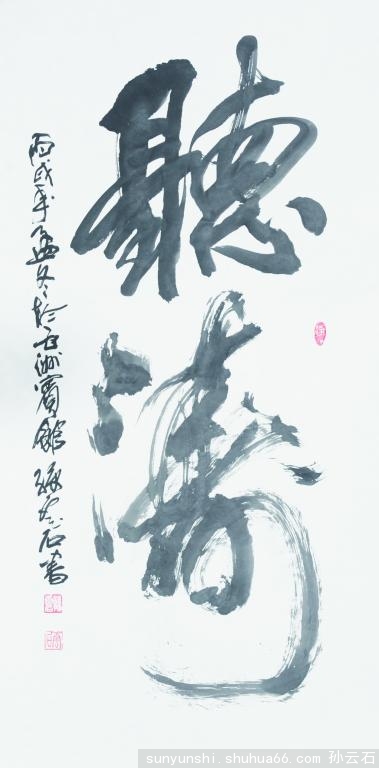 聽濤
丙戌年孟冬於五洲賓館 孫云石書
sunyunshi.shuhua66.com 孙云石